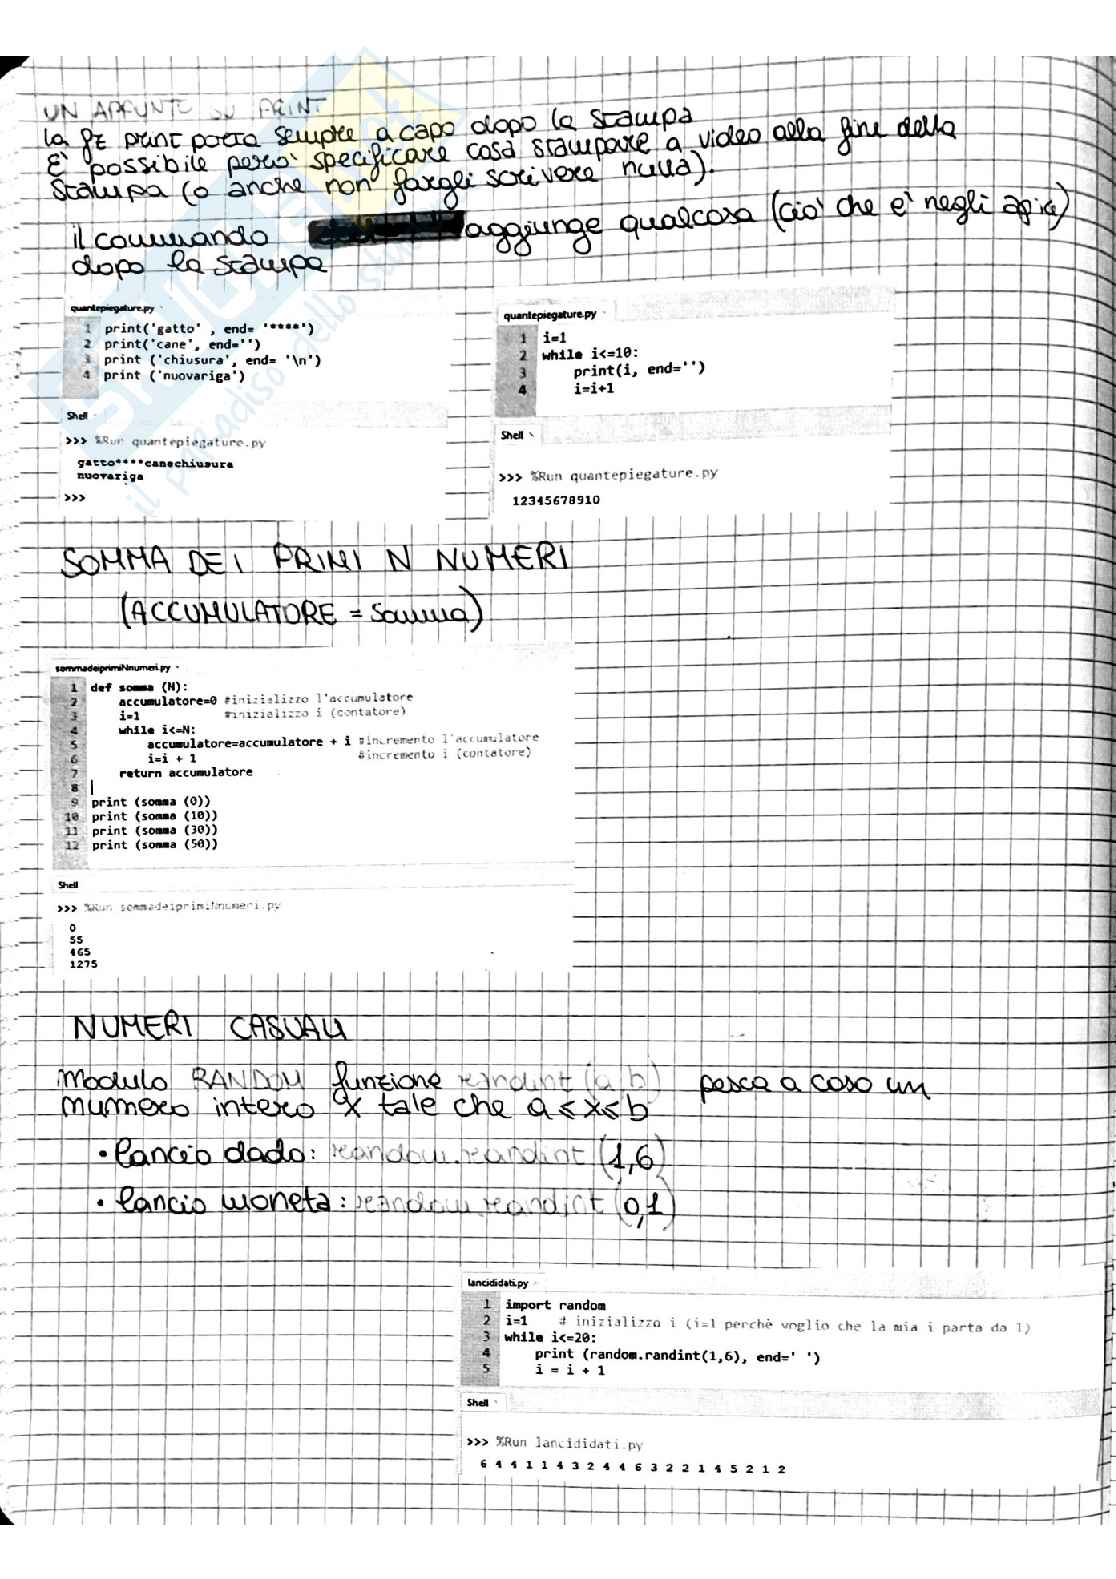 UN APPUNTO SU PRINT
la fz print porta sempre a capo dopo la stampa
E' possibile però specificare cosa stampare a video alla fine della
stampa (o anche non fargli scrivere nulla).
il commando aggiunge qualcosa (ciò che e' negli apici)
dopo la stampa
quantepiegature.py
1 print('gatto' , end= '****')
2 print('cane', end='')
3 print ('chiusura', end= '\n')
4 print ('nuovariga')
Shell
>>> %Run quantepiegature.py
gatto****canechiusura
nuovariga
>>>
quantepiegature.py
1 i=1
2 while i<=10:
3 print(i, end='')
4 i=i+1
Shell
>>> %Run quantepiegature.py
12345678910
SOMMA DEI PRIMI N NUMERI
(ACCUMULATORE = somma)
sommadeiprimiNnumeri.py
1 def somma (N):
2 accumulatore=0 #inizializzo l'accumulatore
3 i=1 #inizializzo i (contatore)
4 while i<=N:
5 accumulatore=accumulatore + i #incremento l'accumulatore
6 i=i + 1 #incremento i (contatore)
7 return accumulatore
8
9 print (somma (0))
10 print (somma (10))
11 print (somma (30))
12 print (somma (50))
Shell
>>> %Run sommadeiprimiNnumeri.py
0
55
465
1275
NUMERI CASUALI
Modulo RANDOM funzione randint (a,b) pesca a caso un
numero intero x tale che a ≤ x ≤ b
• lancio dado: random.randint (1,6)
• lancio moneta: random.randint (0,1)
lancididati.py
1 import random
2 i=1 # inizializzo i (i=1 perchè voglio che la mia i parta da 1)
3 while i<=20:
4 print (random.randint(1,6), end=' ')
5 i = i + 1
Shell
>>> %Run lancididati.py
6 4 4 1 1 4 3 2 4 4 6 3 2 2 1 4 5 2 1 2